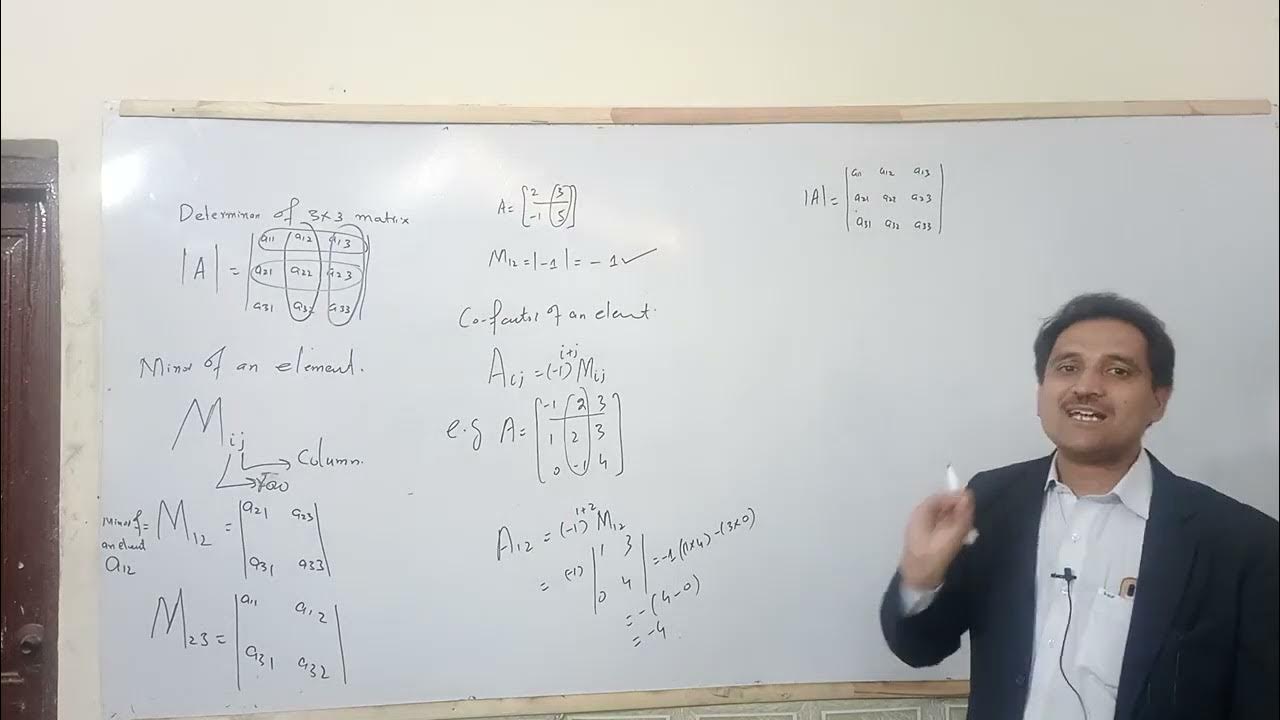 Determinan of 3×3 matrix
|A| = | a11 a12 a13 |
a21 a22 a23
a31 a32 a33
Minor of an element.
Mij
Column.
Row
Minor of an element a12 = M12 = | a21 a23 |
a31 a33
M23 = | a11 a12 |
a31 a32
A = [ 2 3 ]
-1 5
M12 = |-1| = -1 ✓
Co-factor of an element.
Aij = (-1)^i+j Mij
e.g A = [ -1 2 3 ]
1 2 3
0 -1 4
A12 = (-1)^1+2 M12
= (-1) | 1 3 | = -1 (1×4) - (3×0)
0 4
= -(4-0)
= -4
|A| = | a11 a12 a13 |
a21 a22 a23
a31 a32 a33